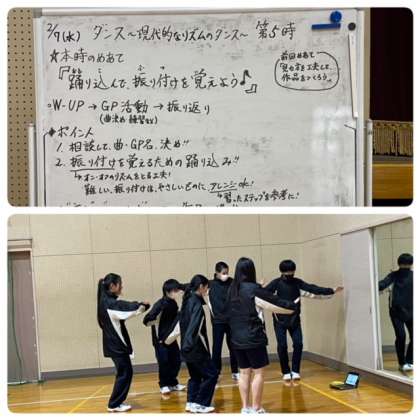 2/7(水) ダンス〜現代的なリズムのダンス〜 第5時
★本時のめあて
『踊り込んで、振り付けを覚えよう♪』
おど こ ふ つ おぼ
前回のめあて
見せ方を工夫して、
作品をつくろう。
○W-UP → GP活動 → 振り返り
(曲決め 練習など)
★ポイント
1. 相談して、曲・GP名、決め!!
2. 振り付けを覚えるための踊り込み!!
↳オン・オフのリズムをとる工夫!
難しい、振り付けは、やさしいものに、アレンジOK!
↳習ったステップを参考に!